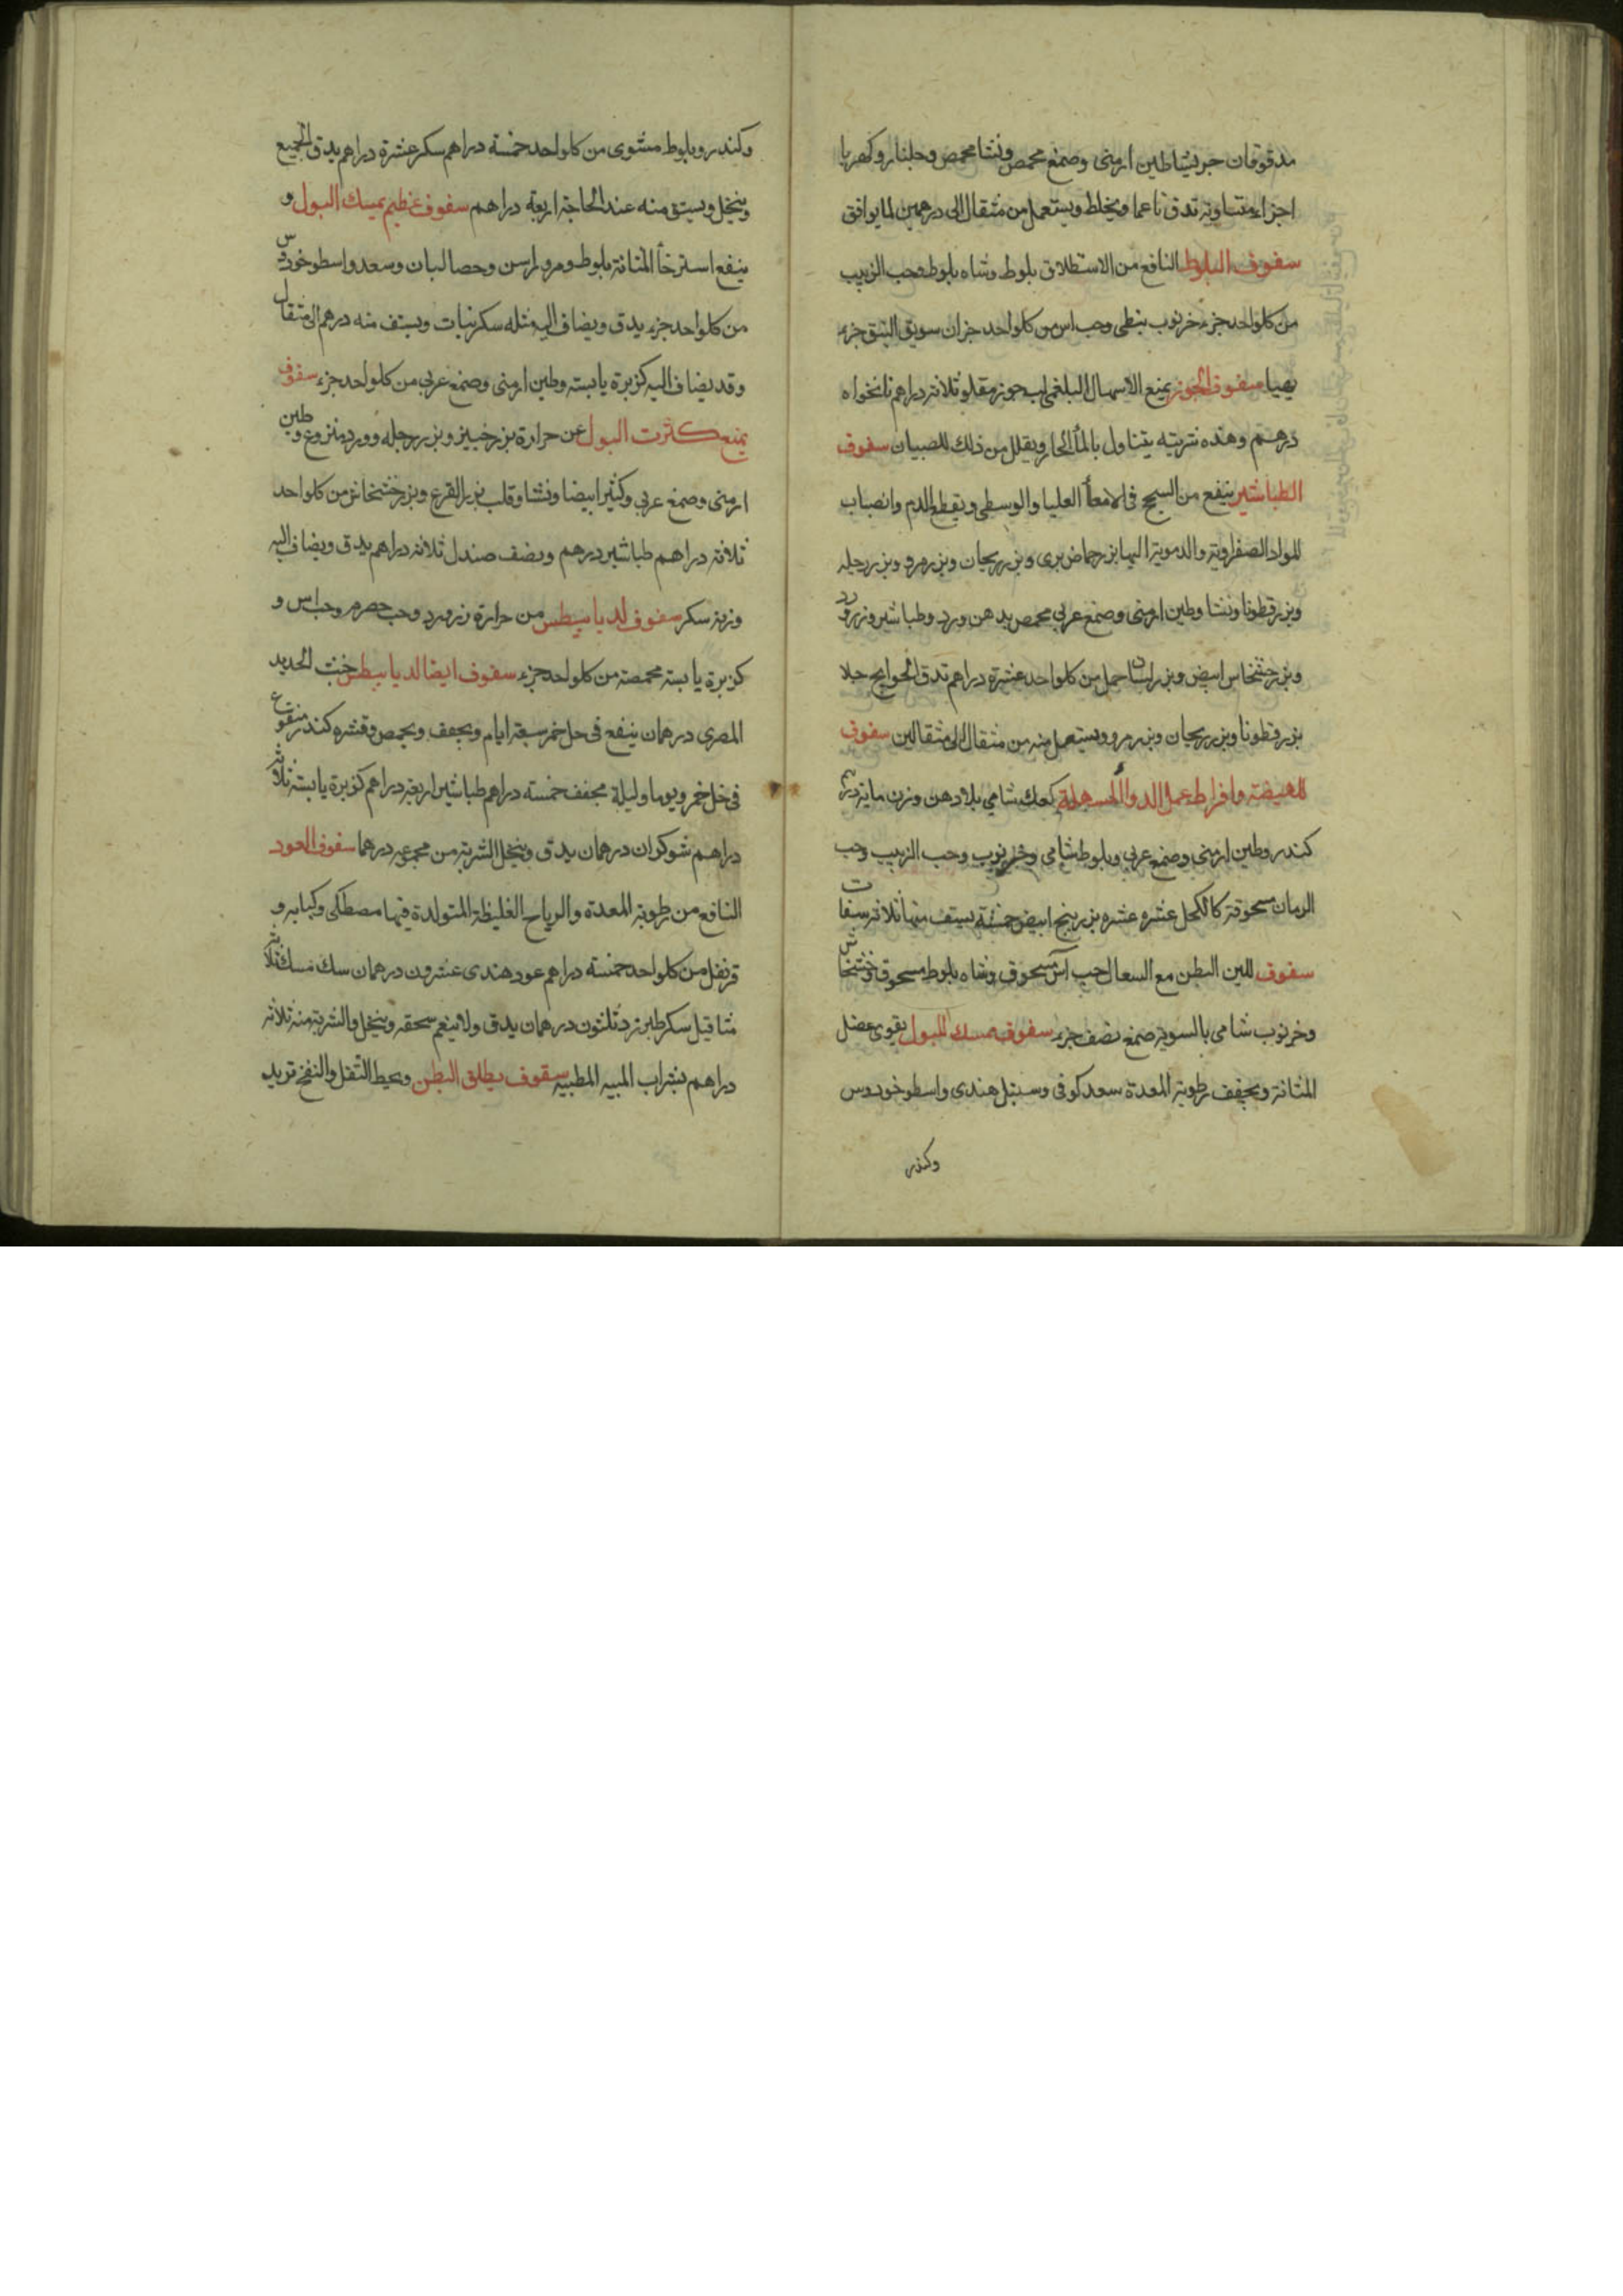 مدقوقان جريشا طين ارمنى وصمغ محمص ونشا محمص وجلنار وكهربا
اجزاء متساوية تدق ناعما ويخلط ويستعمل من مثقال الى درهمين لما يوافق
سفوف البلوط النافع من الاستطلاق بلوط وشاه بلوط وحب الزبيب
من كل واحد جزء خرنوب نبطى وحب اس من كل واحد جزان سويق النبق جزء
يهيا سفوف الجوز يمنع الاسهال البلغمى لب جوز مقلو ثلاثة دراهم نانخواه
درهم وهذه شربته يتناول بالمأ الحار ويقلل من ذلك للصبيان سفوف
الطباشير ينفع من السحج فى الامعأ العليا والوسطى ويقطع الدم وانصباب
المواد الصفراوية والدموية اليها بزر حماض برى وبزر ريحان وبزر مرو وبزر رجله
وبزر قطونا ونشا وطين ارمنى وصمغ عربى محمص بدهن ورد وطباشير وزرورد
وبزر خشخاش ابيض وبزر لسان حمل من كل واحد عشرة دراهم تدق الحوايج خلا
بزر قطونا وبزر ريحان وبزر مرو ويستعمل منه من مثقال الى مثقالين سفوف
للهيضة وافراط عمل الدوأ المسهلة كعك شامى بلا دهن وزن ماية درهم
كندر وطين ارمنى وصمغ عربى وبلوط شامى وخرنوب وحب الزبيب وحب
الرمان مسحوقة كالكحل عشره عشره بزر بنج ابيض خمسة يستف منها ثلاثة سفات
سفوف للين البطن مع السعال حب آس مسحوق وشاه بلوط مسحوق وخشخاش
وخرنوب شامى بالسوية صمغ نصف جزء سفوف يمسك البول يقوى عضل
المثانة ويجفف رطوبة المعدة سعد كوفى وسنبل هندى واسطوخودوس
وكندر
وكندر وبلوط مشوى من كل واحد خمسة دراهم سكر عشرة دراهم يدق الجميع
وينخل ويستف منه عند الحاجة اربعة دراهم سفوف عظيم يمسك البول و
ينفع استرخأ المثانة بلوط ومر وراسن وحصا لبان وسعد واسطوخودس
من كل واحد جزء يدق ويضاف اليه مثله سكر نبات ويستف منه درهم الى مثقال
وقد يضاف اليه كزبرة يابسة وطين ارمنى وصمغ عربى من كل واحد جزء سفوف
يمنع كثرت البول عن حرارة بزر خبيز وبزر رجله وورد منزوع وطين
ارمنى وصمغ عربى وكثيرا بيضا ونشا وقلب بزر القرع وبزر خشخاش من كل واحد
ثلاثة دراهم طباشير درهم ونصف صندل ثلاثة دراهم يدق ويضاف اليه
وزنه سكر سفوف لديابيطس من حرارة زرورد وحب حصرم وحب اس و
كزبرة يابسة محمصة من كل واحد جزء سفوف ايضا لديابيطس خبث الحديد
المصرى درهمان ينقع فى خل خمر سبعة ايام ويجفف ويحمص وقشره كندر منقوع
فى خل خمر ويوما وليلة مجفف خمسة دراهم طباشير اربعة دراهم كزبرة يابسة ثلاثة
دراهم شوكران درهمان يدق وينخل الشربة من مجموعه درهما سفوف العود
النافع من رطوبة المعدة والرياح الغليظة المتولدة فيها مصطكى وكبابه و
قرنفل من كل واحد خمسة دراهم عود هندى عشرون درهمان سك مسك ثلاثة
مثاقيل سكر طبرزد ثلثون درهمان يدق ولا ينعم سحقه وينخل والشربة منه ثلاثة
دراهم بشراب الميبه المطيبه سفوف يطلق البطن ويحيط الثفل والنفخ تربد